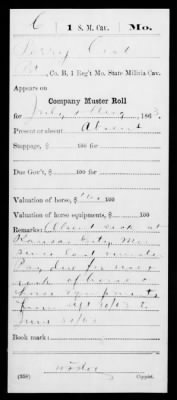 C | 1 S. M. Cav. | Mo.
Perry
Pvt, Co. B, 1 Reg't Mo. State Militia Cav.
Appears on
Company Muster Roll
for July & Aug, 1863.
Present or absent Absent
Stoppage, $ 100 for
Due Gov't, $ 100 for
Valuation of horse, $ 100
Valuation of horse equipments, $ 100
Remarks: Absent sick at
Kansas City, Mo.
since last muster
Pay due for use &
risk of horse &
horse equipments
from to
June 30/63
Book mark:
(358) Copyist.